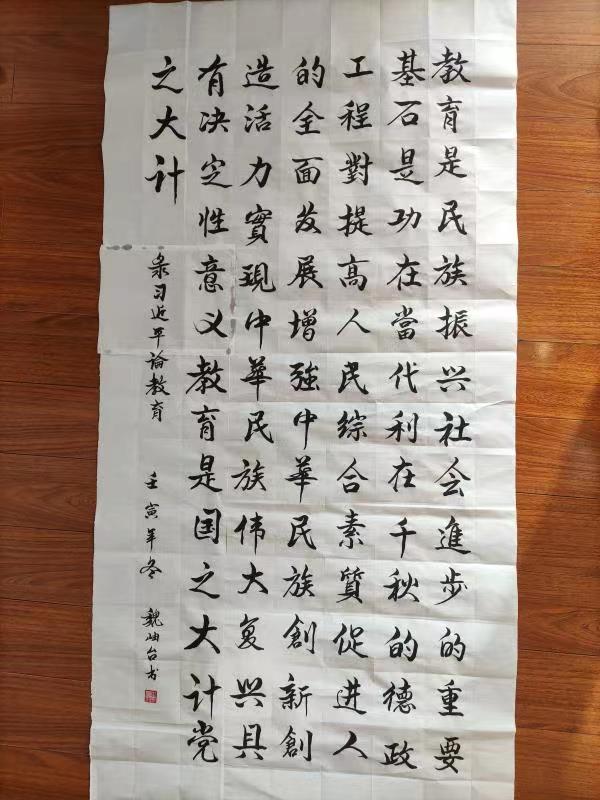 教育是民族振兴社会進步的重要
基石是功在當代利在千秋的德政
工程對提高人民综合素質促进人
的全面发展增強中華民族創新創
造活力實現中華民族伟大复兴具
有决定性意义教育是国之大计党
之大计
录习近平論教育 壬寅年冬 魏岫台书